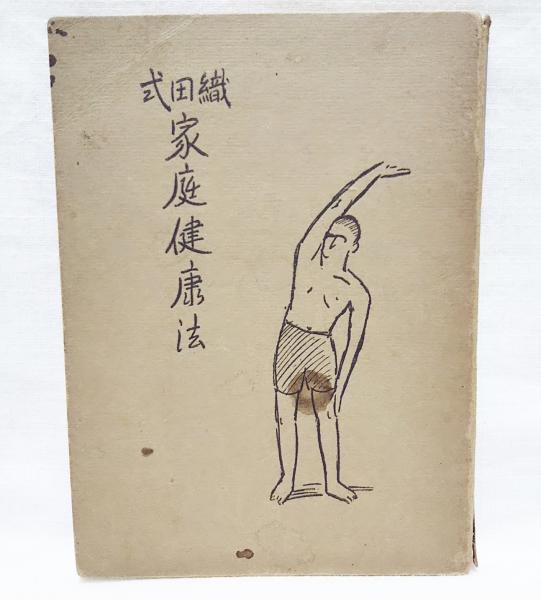 織田式
家庭健康法